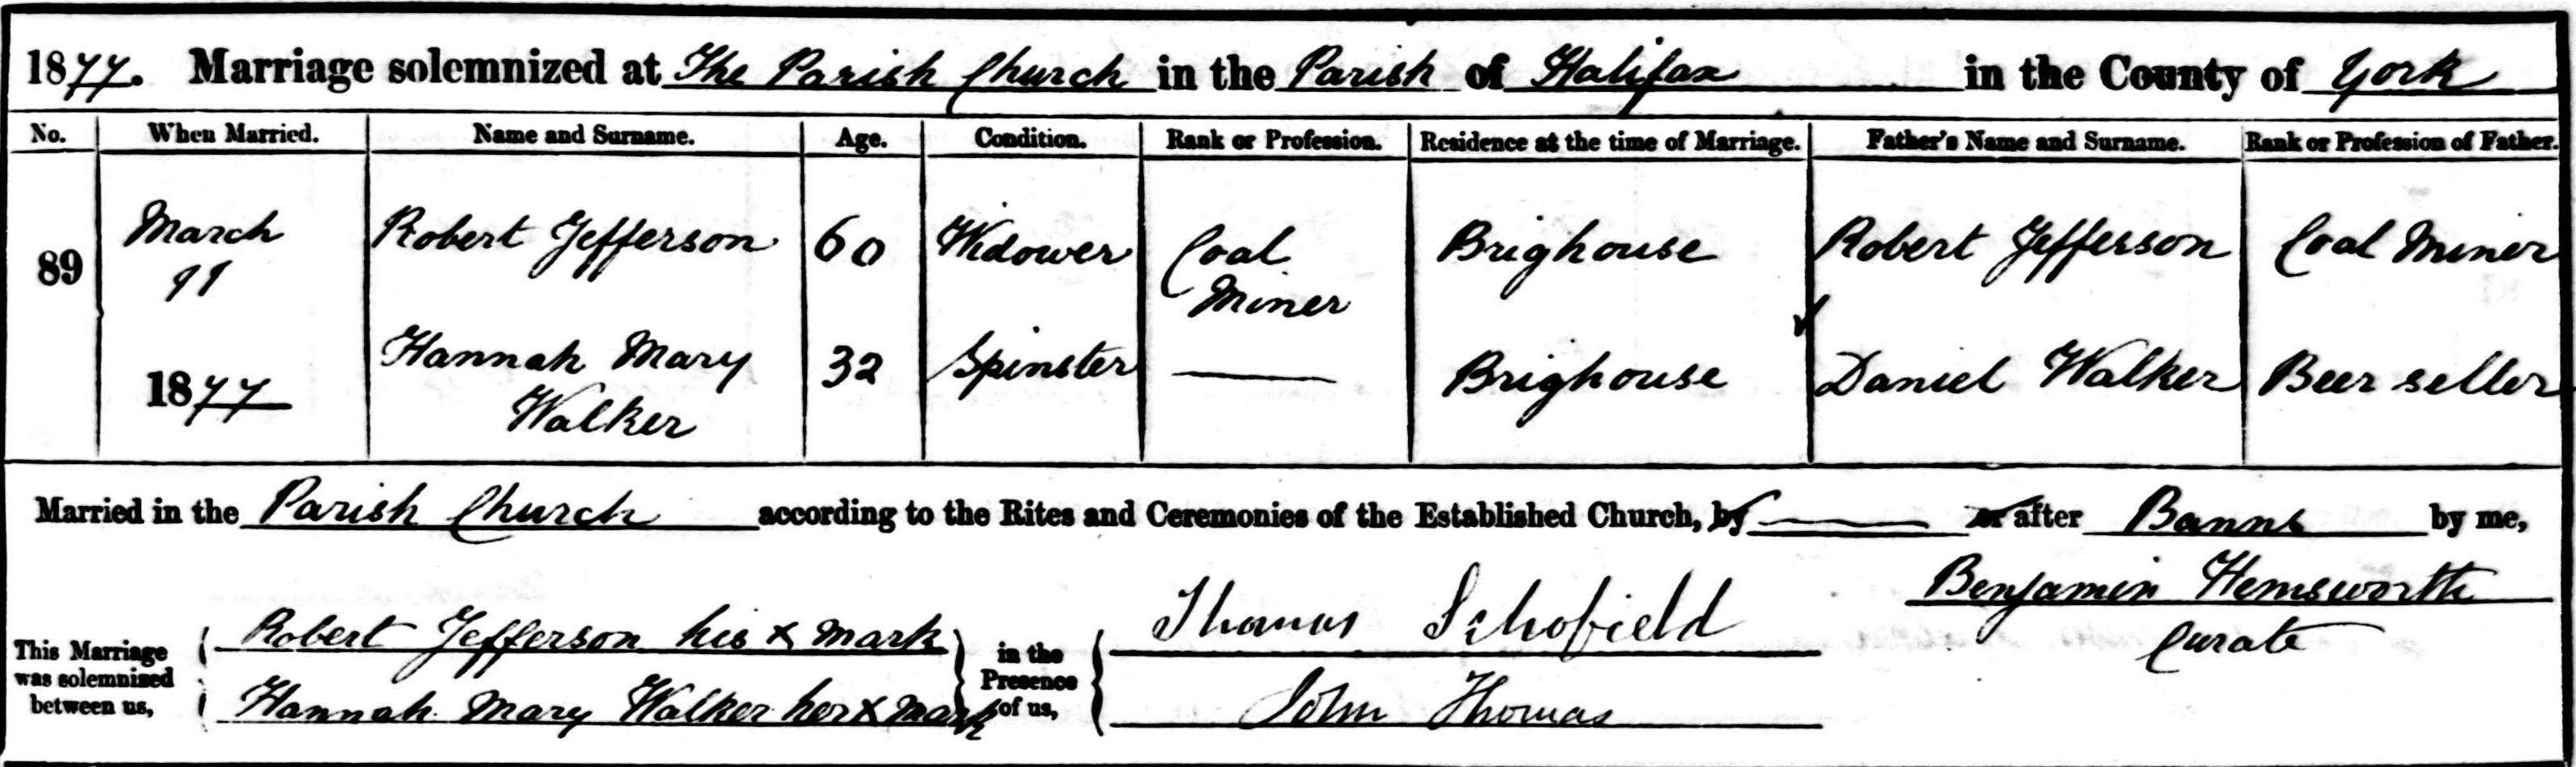 1877. Marriage solemnized at The Parish Church in the Parish of Halifax in the County of York
No. When Married. Name and Surname. Age. Condition. Rank or Profession. Residence at the time of Marriage. Father's Name and Surname. Rank or Profession of Father.
89 March 11 1877 Robert Jefferson 60 Widower Coal Miner Brighouse Robert Jefferson Coal Miner
Hannah Mary Walker 32 Spinster Brighouse Daniel Walker Beer seller
Married in the Parish Church according to the Rites and Ceremonies of the Established Church, by or after Banns by me,
Benjamin Hemsworth
Curate
This Marriage was solemnized between us, Robert Jefferson his x mark
Hannah Mary Walker her x mark
in the Presence of us, Thomas Schofield
John Thomas